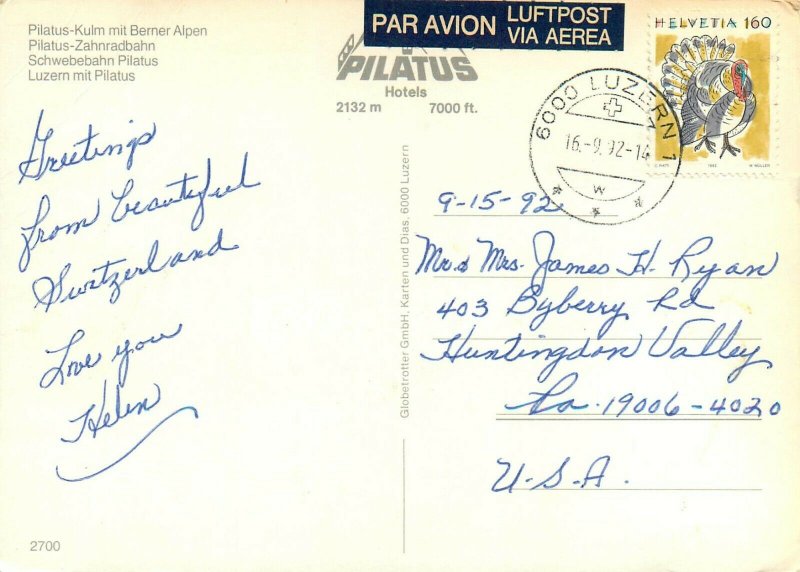 Pilatus-Kulm mit Berner Alpen
Pilatus-Zahnradbahn
Schwebebahn Pilatus
Luzern mit Pilatus
PAR AVION
LUFTPOST
VIA AEREA
PILATUS
Hotels
2132 m 7000 ft.
HELVETIA 160
1992
6000 LUZERN 1
16.-9.92-14
W
Greetings
from beautiful
Switzerland
Love you
Helen
Globetrotter GmbH, Karten und Dias, 6000 Luzern
9-15-92
Mr. & Mrs. James H. Ryan
403 Byberry Rd
Huntingdon Valley
Pa. 19006-4020
U.S.A.
2700